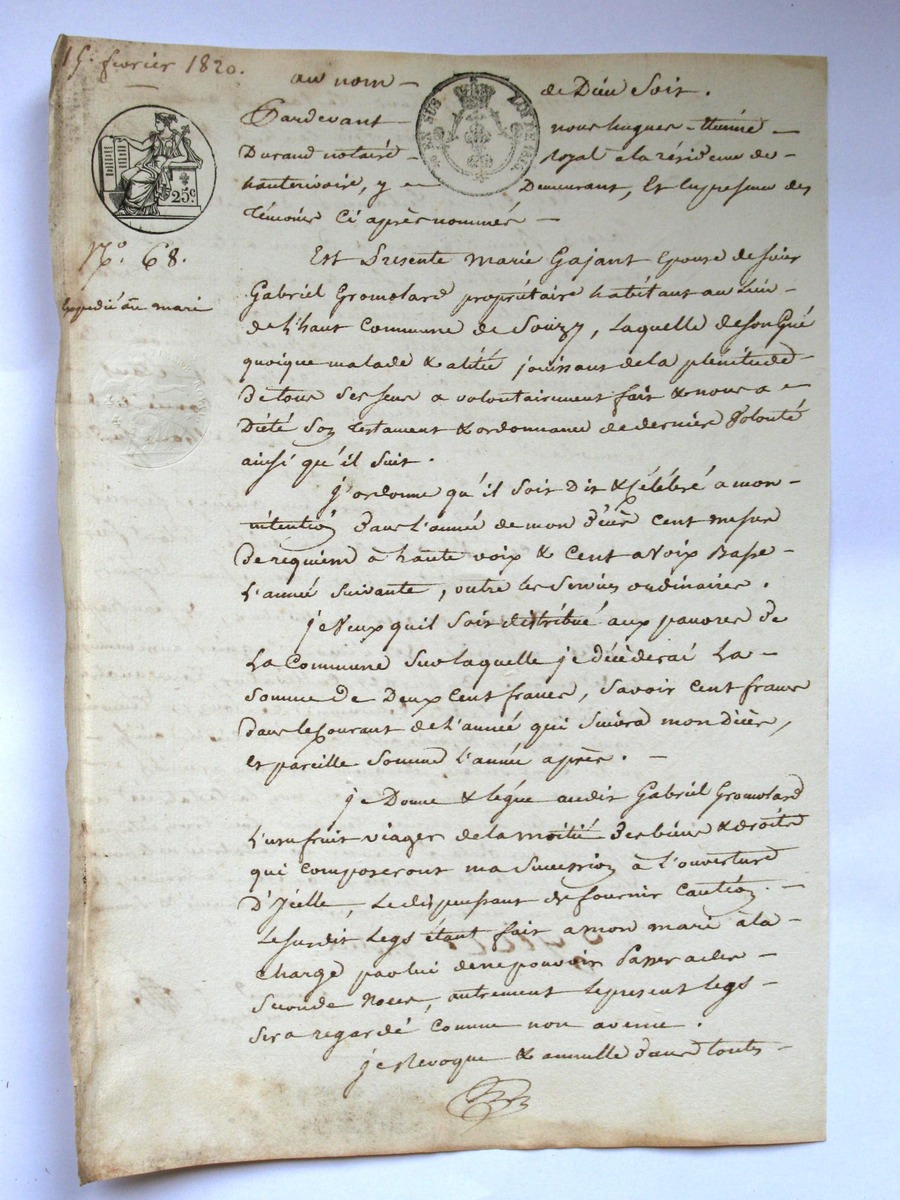 15 février 1820.
au nom de Dieu Soit.
Pardevant nous hugues étienne
Durand notaire royal a la résidence de
hauterivoire, y Demeurant, Et en presence des
Témoins Ci après nommés
25c
EN SUS LOI DE 1816
N.o 68.
Expedié au mari
Est Présente Marie Gajant Epouse de sieur
Gabriel Gromolard propriétaire habitant au Lieu
de L'haut Commune de Souzy, Laquelle de son Gré
quoique malade & alitée jouissant de la plénitude
De tous Ses sens a volontairement fait & nous a
Dicté Son Testament & ordonnance de dernière Volonté
ainsi qu'il Suit.
j'ordonne qu'il Soit Dit & Célébré a mon
intention dans L'année de mon décès cent messes
De requiem à haute voix & Cent a Voix Basse
L'année Suivante, outre les Services ordinaires.
je Veux quil Soit distribué aux pauvres de
La Commune Sur laquelle je décèderai La
Somme de Deux Cent francs, Savoir cent francs
dans le Courant de L'année qui Suivra mon décès,
et pareille Somme L'année après.
je Donne & légue audit Gabriel Gromolard
L'usufruit viager de la moitié des biens & droits
qui composeront ma Succession à L'ouverture
D'Icelle, Le dispensant de fournir Caution.
Le susdit Legs étant fait a mon mari à la
charge par lui de ne pouvoir Passer a des
Seconde Noces, autrement Le present Legs
Sera regardé Comme non avenu.
je Revoque & annulle dans toutes